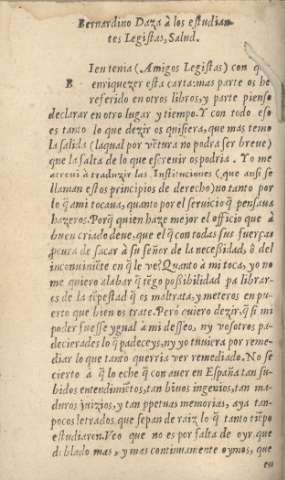 Bernardino Daza à los estudian-
tes Legistas, Salud.
BIen tenia (Amigos Legistas) con q̃
enriquezer esta carta: mas parte os he
referido en otros libros, y parte pienso
declarar en otro lugar y tiempo. Y con todo eso
es tanto lo que dezir os quisiera, que mas temo
la salida (la qual por vẽtura no podra ser breve)
que la falta de lo que escrevir os podria. Yo me
atrevi à traduzir las Instituciones (que ansi se
llaman estos principios de derecho) no tanto por
lo q̃ a mi tocava, quanto por el servicio q̃ pensava
hazeros. Porq̃ quien haze mejor el officio que à
buen criado deve, que el q̃ con todas sus fuerças
procura de sacar à su señor de la necesidad, ò del
inconviniẽte en q̃ le ve? Quanto à mi toca, yo no
me quiero alabar q̃ tẽgo posibilidad pa librar-
es de la tẽpestad q̃ os maltrata, y meteros en pu-
erto que bien os trate. Però quiero dezir, q̃ si mi
poder fuesse ygual à mi desseo, ny vosotros pa-
decieredes lo q̃ padeceys, ny yo tuviera por reme-
diar lo que tanto querria ver remediado. No se
cierto à q̃ lo eche q̃ con aver en España tan su-
bidos entendimiẽtos, tan bivos ingenios, tan ma-
duros juizios, y tan ppetuas memorias, aya tan
pocos letrados que sepan de raiz lo q̃ tanto tiẽpo
estudiaron. Veo que no es por falta de oyr, que
di blado mas, y mas continuamente oymos, que
en